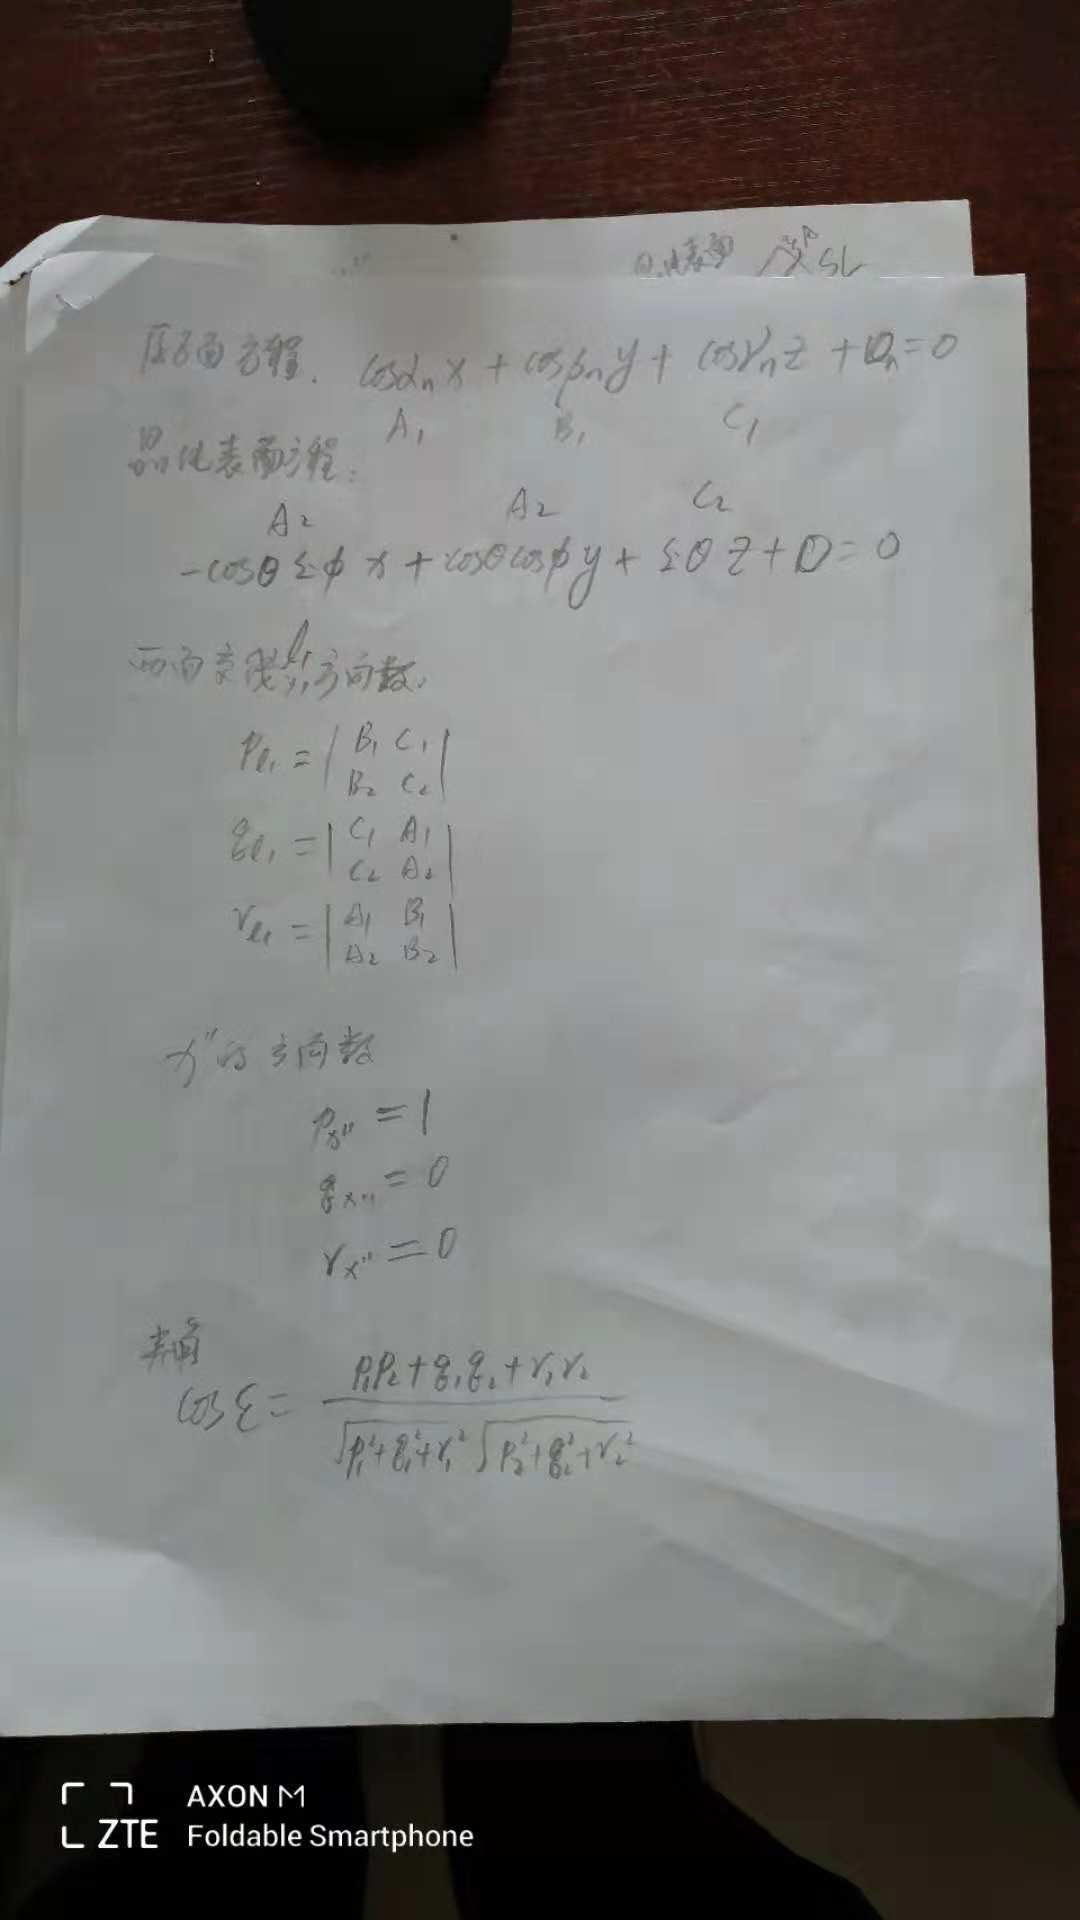 晶体表面 SL
压面方程. cosαₙ x + cosβₙ y + cosγₙ z + Dₙ = 0
A₁ B₁ C₁
晶体表面方程:
A₂ A₂ C₂
-cosθ Σφ x + cosθ cosφ y + Σθ z + D = 0
两面交线l₁方向数.
P_l₁ = | B₁ C₁ |
| B₂ C₂ |
q_l₁ = | C₁ A₁ |
| C₂ A₂ |
r_l₁ = | A₁ B₁ |
| A₂ B₂ |
x″的方向数
P_x″ = 1
q_x″ = 0
r_x″ = 0
夹角
cos ξ = P₁P₂ + q₁q₂ + r₁r₂
√P₁²+q₁²+r₁² √P₂²+q₂²+r₂²
AXON M
ZTE Foldable Smartphone